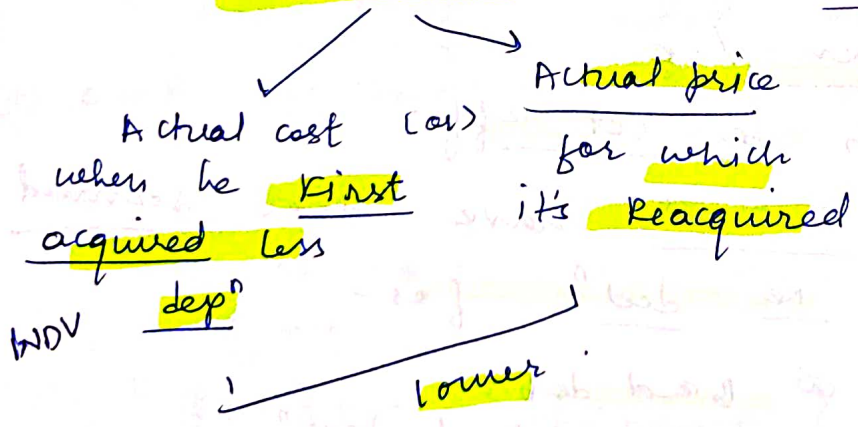 Actual cost (or)
when he First
acquired less
depⁿ
WDV
Actual price
for which
it's Reacquired
lower